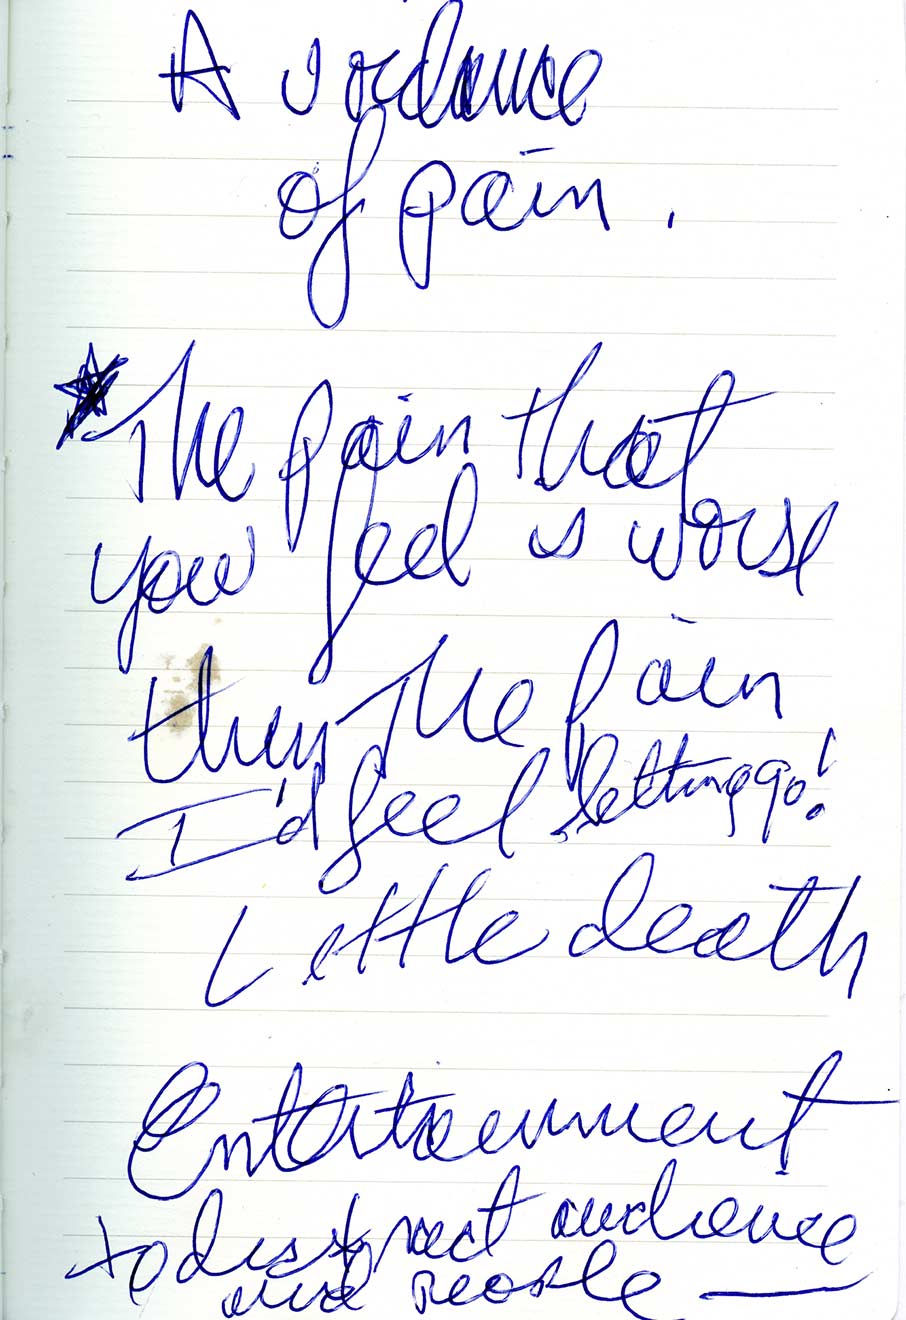 Avoidance
of pain.
The pain that
you feel is worse
then the pain
I'd feel letting go!
Little death
Entertainment
to distract audience
and people —